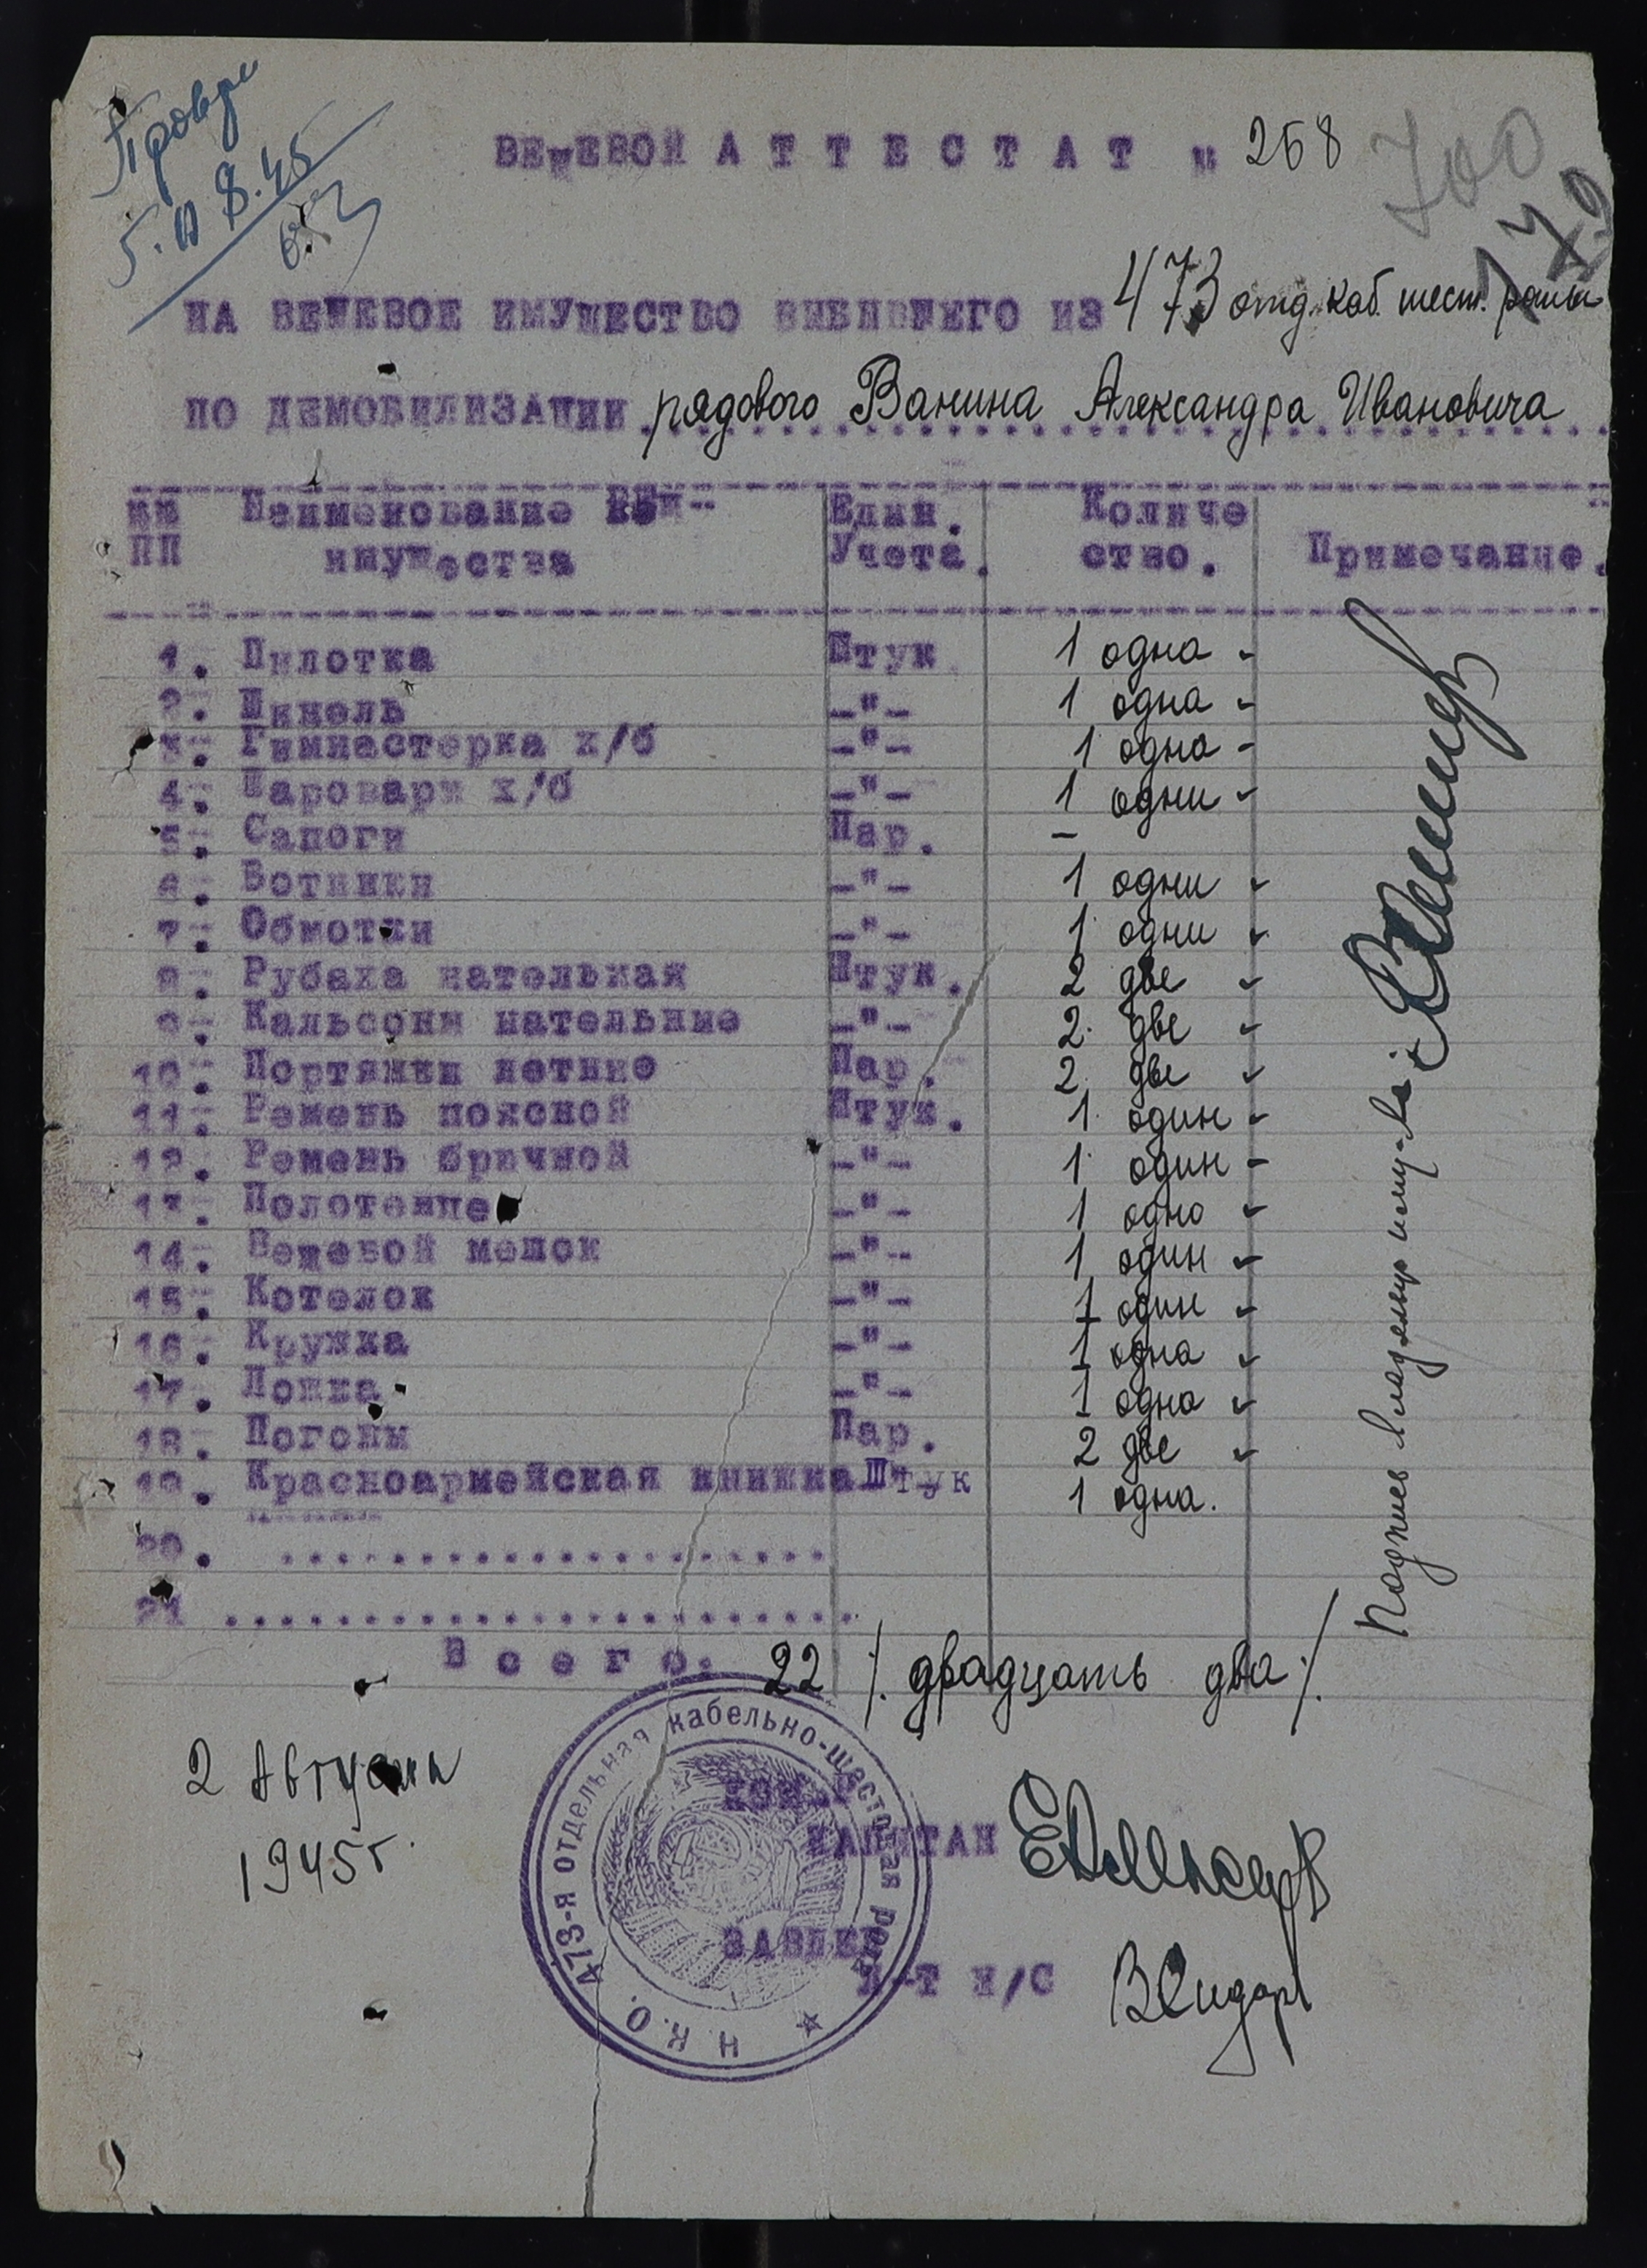 5.08.45
ВЕЩЕВОЙ АТТЕСТАТ № 258
700
179
НА ВЕЩЕВОЕ ИМУЩЕСТВО ВЫБЫВШЕГО ИЗ 473 отд. каб. шест. роты
ПО ДЕМОБИЛИЗАЦИИ рядового Ванина Александра Ивановича
№№ Наименование Един. Количе
ПП имущества Учета. ство. Примечание.
1. Пилотка Штук 1 одна -
2. Шинель -"- 1 одна -
3. Гимнастерка х/б -"- 1 одна -
4. Шаровары х/б -"- 1 одни
5. Сапоги Пар. -
6. Ботинки -"- 1 одни
7. Обмотки -"- 1 одни
8. Рубаха нательная Штук. 2 две
9. Кальсоны нательные -"- 2. две
10. Портянки летние Пар. 2. две
11. Ремень поясной Штук. 1. один -
12. Ремень брючной -"- 1. один -
13. Полотенце -"- 1 одно
14. Вещевой мешок -"- 1 один
15. Котелок -"- 1 один
16. Кружка -"- 1 одна
17. Ложка -"- 1 одна
18. Погоны Пар. 2 две
19. Красноармейская книжка Штук 1 одна.
20. ......................
21 ..........................
Всего. 22 /. двадцать два ./
Подпись владельца имущ-ва:
2 Августа
1945 г.
КОМ
КАПИТАН
ЗАВДЕЛ
Л-Т И/С
473-я отдельная кабельно-шестовая рота
Н.К.О.